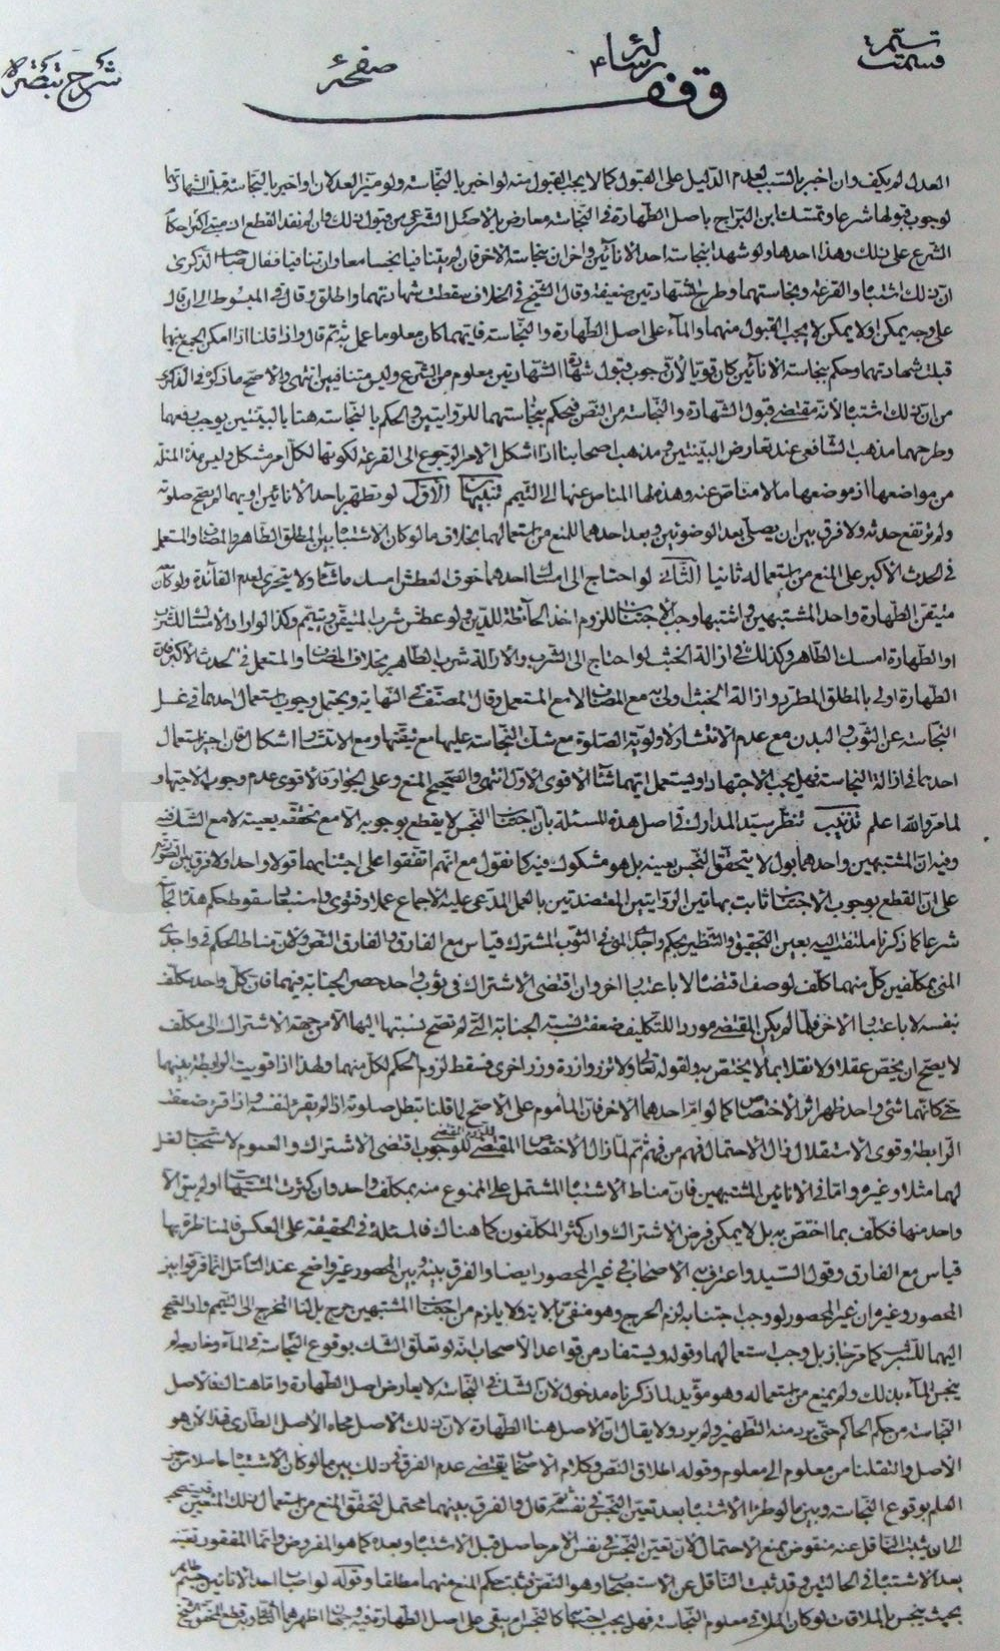 تتمة قسمت رسالهٔ ۴ صفحهٔ شرح تبصرة
وقف
العدل لم يكف وان اخبر بالسبب لعدم الدليل على القبول كما لا يجب القبول منه لو اخبر بالنجاسته ولو ميز العدلان او اخبر بالنجاسته قبل شهادتهما
لوجوب قبولها شرعا وتمسك ابن البراج باصل الطهارة في النجاسته معارض بالاصل الشرعى من قبول ذلك فان لم نفد القطع
الشرع على ذلك وهذا احدها ولو شهدا بنجاسته احد الانائين واخران بنجاسته الاخر فان لم يتنافيا نجسا معا وان تنافيا فقال صاحب الذكرى
ان ذلك اشتباه والقرعة ونجاستهما وطرح الشهادتين ضعيفة وقال الشيخ في الخلاف سقطت شهادتهما واطلق وقال في المبسوط الى ان قال
على وجه يمكن او لا يمكن لا يجب القبول منهما والماء على اصل الطهارة والنجاسته فايتهما كان معلوما عمل به ثم قال واذا قلنا اذا امكن الجمع بينهما
قبلت شهادتهما وحكم بنجاسة الانائين كان قويا لان وجوب قبول شهادة الشاهدين معلوم من الشرع وليس متنافيين انتهى والاصح ما ذكره في الذكرى
من ان ذلك اشتباه لانه مقتضى قبول الشهادة والنجاسته من النص فيحكم بنجاستهما للروايتين والحكم بالنجاسته هنا بالبينتين يوجب رفعهما
وطرحهما مذهب الشافعى عند تعارض البينتين ومذهب اصحابنا اذا اشكل الامر الرجوع الى القرعة لكونها لكل امر مشكل وليس هذه المسئلة
من مواضعها اذ موضعها ما لا مناص عنه وهذه لها المناص عنها الى التيمم تنبيهان الاول لو تطهر باحد الانائين او بهما لم يصح صلوته
ولم يرتفع حدثه ولا فرق بين ان يصلى بعد الوضوئين وبعد احدهما للمنع من استعمالهما بخلاف ما لو كان الاشتباه بين المطلق الطاهر والمضاف والمستعمل
في الحدث الاكبر على المنع من استعماله ثانيا الثانى لو احتاج الى امساك احدهما خوف العطش امسك ما شاء ولا يتحرى لعدم الفائدة ولو كان معه
متيقن الطهارة واحد المشتبهين واشتبها وجب الاجتناب للزوم اخذ الحائطة للدين ولو عطش شرب المتيقن ويتيمم وكذا لو اراد الامساك للشرب
او الطهارة امسك الطاهر وكذلك في ازالة الخبث لو احتاج الى الشرب والازالة شرب الطاهر بخلاف المضاف والمستعمل في الحدث الاكبر فان
الطهارة اولى بالمطلق المطهر وازالة الخبث اولى به مع المضاف لا مع المستعمل وقال المصنف في النهاية ويحتمل وجوب استعمال احدهما في غسل
النجاسته عن الثوب والبدن مع عدم الانتشار لاولوية الصلوة مع شك النجاسته عليها مع تيقنها ومع الانتشار اشكال فان اجيز استعمال
احدهما في ازالة النجاسته فهل يجب الاجتهاد او يستعمل ايهما شاء الاقوى الاول انتهى والصحيح المنع وعلى الجواز فالاقوى عدم وجوب الاجتهاد
لما مر والله اعلم تذنيب تنظر سيد المدارك في اصل هذه المسئلة بان اجتناب النجس لا يقطع بوجوبه الا مع تحققه بعينه لا مع الشك فيه
وفيه ان المشتبهين واحدهما بول لا يتحقق النجس بعينه بل هو مشكوك فيه كما نقول مع انهم اتفقوا على اجتنابهما قولا واحدا ولا فرق بين
على ان القطع بوجوب الاجتناب ثابت بهاتين الروايتين المعتضدتين بالعمل المدعى عليه الاجماع عملا وفتوى واستبعاد سقوط حكم هذه النجاسة
شرعا كما ذكرنا ملتفت اليه بعين التحقيق والتنظير بحكم واجدى المنى في الثوب المشترك قياس مع الفارق والفارق النص ولان مناط الحكم في واجدى
المنى بمكلفين كل منهما كلف لوصف اقتضاه لا باعتبار اخر وان اقتضى الاشتراك في ثوب واحد حصر الجنابة فيهما فان كل واحد مكلف
بنفسه لا باعتبار الاخر فلما لم يكن المقتضى موردا للتكليف ضعفت نسبة الجنابة التى لم تصح نسبتها اليها الا من جهة الاشتراك الى مكلف
لا يصح ان يختص عقلا ولا نقلا بما لا يختص به ولقوله تعالى ولا تزر وازرة وزر اخرى فسقط لزوم الحكم لكل منهما ولهذا اذا قويت الرابطة بينهما
حتى كانهما شئ واحد ظهر اثر الاختصاص كما لو ام احدهما الاخر فان الماموم على الاصح لما قلنا تبطل صلوته اذا لم يقرء لنفسه واذا قرء ضعفت
الرابطة وقوى الاستقلال زال الاحتمال فهم من فهم ثم لما زال الاختصاص المقتضى للوجوب اقتضى الاشتراك والعموم لاستحباب الغسل
لهما مثلا وغيره واما في الانائين المشتبهين فان مناط الاشتباه المشتمل على الممنوع منه بمكلف واحد وان كثرت المشتبهات او لم يبق الا
واحد منها فكلف بما اختص به بل لا يمكن فرض الاشتراك وان كثر المكلفون كما هناك فالمسئلة في الحقيقة على العكس فالمناظرة بها
قياس مع الفارق وقول السيد واعترف به الاصحاب في غير المحصور ايضا والفرق بينه وبين المحصور غير واضح عند التامل انما فرقوا بين
المحصور وغيره ان غير المحصور لو وجب اجتنابه لزم الحرج وهو منفى بالاية ولا يلزم من اجتناب المشتبهين حرج بل لنا المخرج الى التيمم وان احتيج
اليهما للشرب كما مر جاز بل وجب استعمالهما وقوله ويستفاد من قواعد الاصحاب انه لو تعلق الشك بوقوع النجاسته في الماء وخارجه لم
ينجس الماء بذلك ولم يمنع من استعماله وهو مؤيد لما ذكرناه مدخول لان الشك في النجاسته لا يعارض اصل الطهارة واما هنا فالاصل
النجاسته من حكم الحاكم حتى يرد منه التطهير ولم يرد ولا يقال ان الاصل هنا الطهارة لان ذلك الاصل محاه الاصل الطارى فهذا لان هو
الاصل والتنقلنا من معلوم الى معلوم وقوله اطلاق النص وكلام الاصحاب يقتضى عدم الفرق في ذلك بين ما لو كان الاشتباه حاصلا من حين
العلم بوقوع النجاسته وبين ما لو طرا الاشتباه بعد تعين النجس في نفسه قال والفرق بينهما محتمل لتحقق المنع من استعمال ذلك المتعين فيستصحب
الى ان يثبت الناقل عنه منقوض بمنع الاحتمال لان تعين النجس في نفس الامر حاصل قبل الاشتباه وبعده كما هو المفروض وانما المفقود تعينه
بعد الاشتباه في الحالتين وقد ثبت الناقل عن الاستصحاب وهو النص فيثبت حكم المنع منهما مطلقا وقوله لو اصاب احد الانائين جسم طاهر
بحيث ينجس بالملاقات لو كان الملاقى معلوم النجاسته فهل يجب اجتنابه كالنجس ام يبقى على اصل الطهارة فيه وجهان اظهرهما الثانى وبه قطع المحقق الشيخ